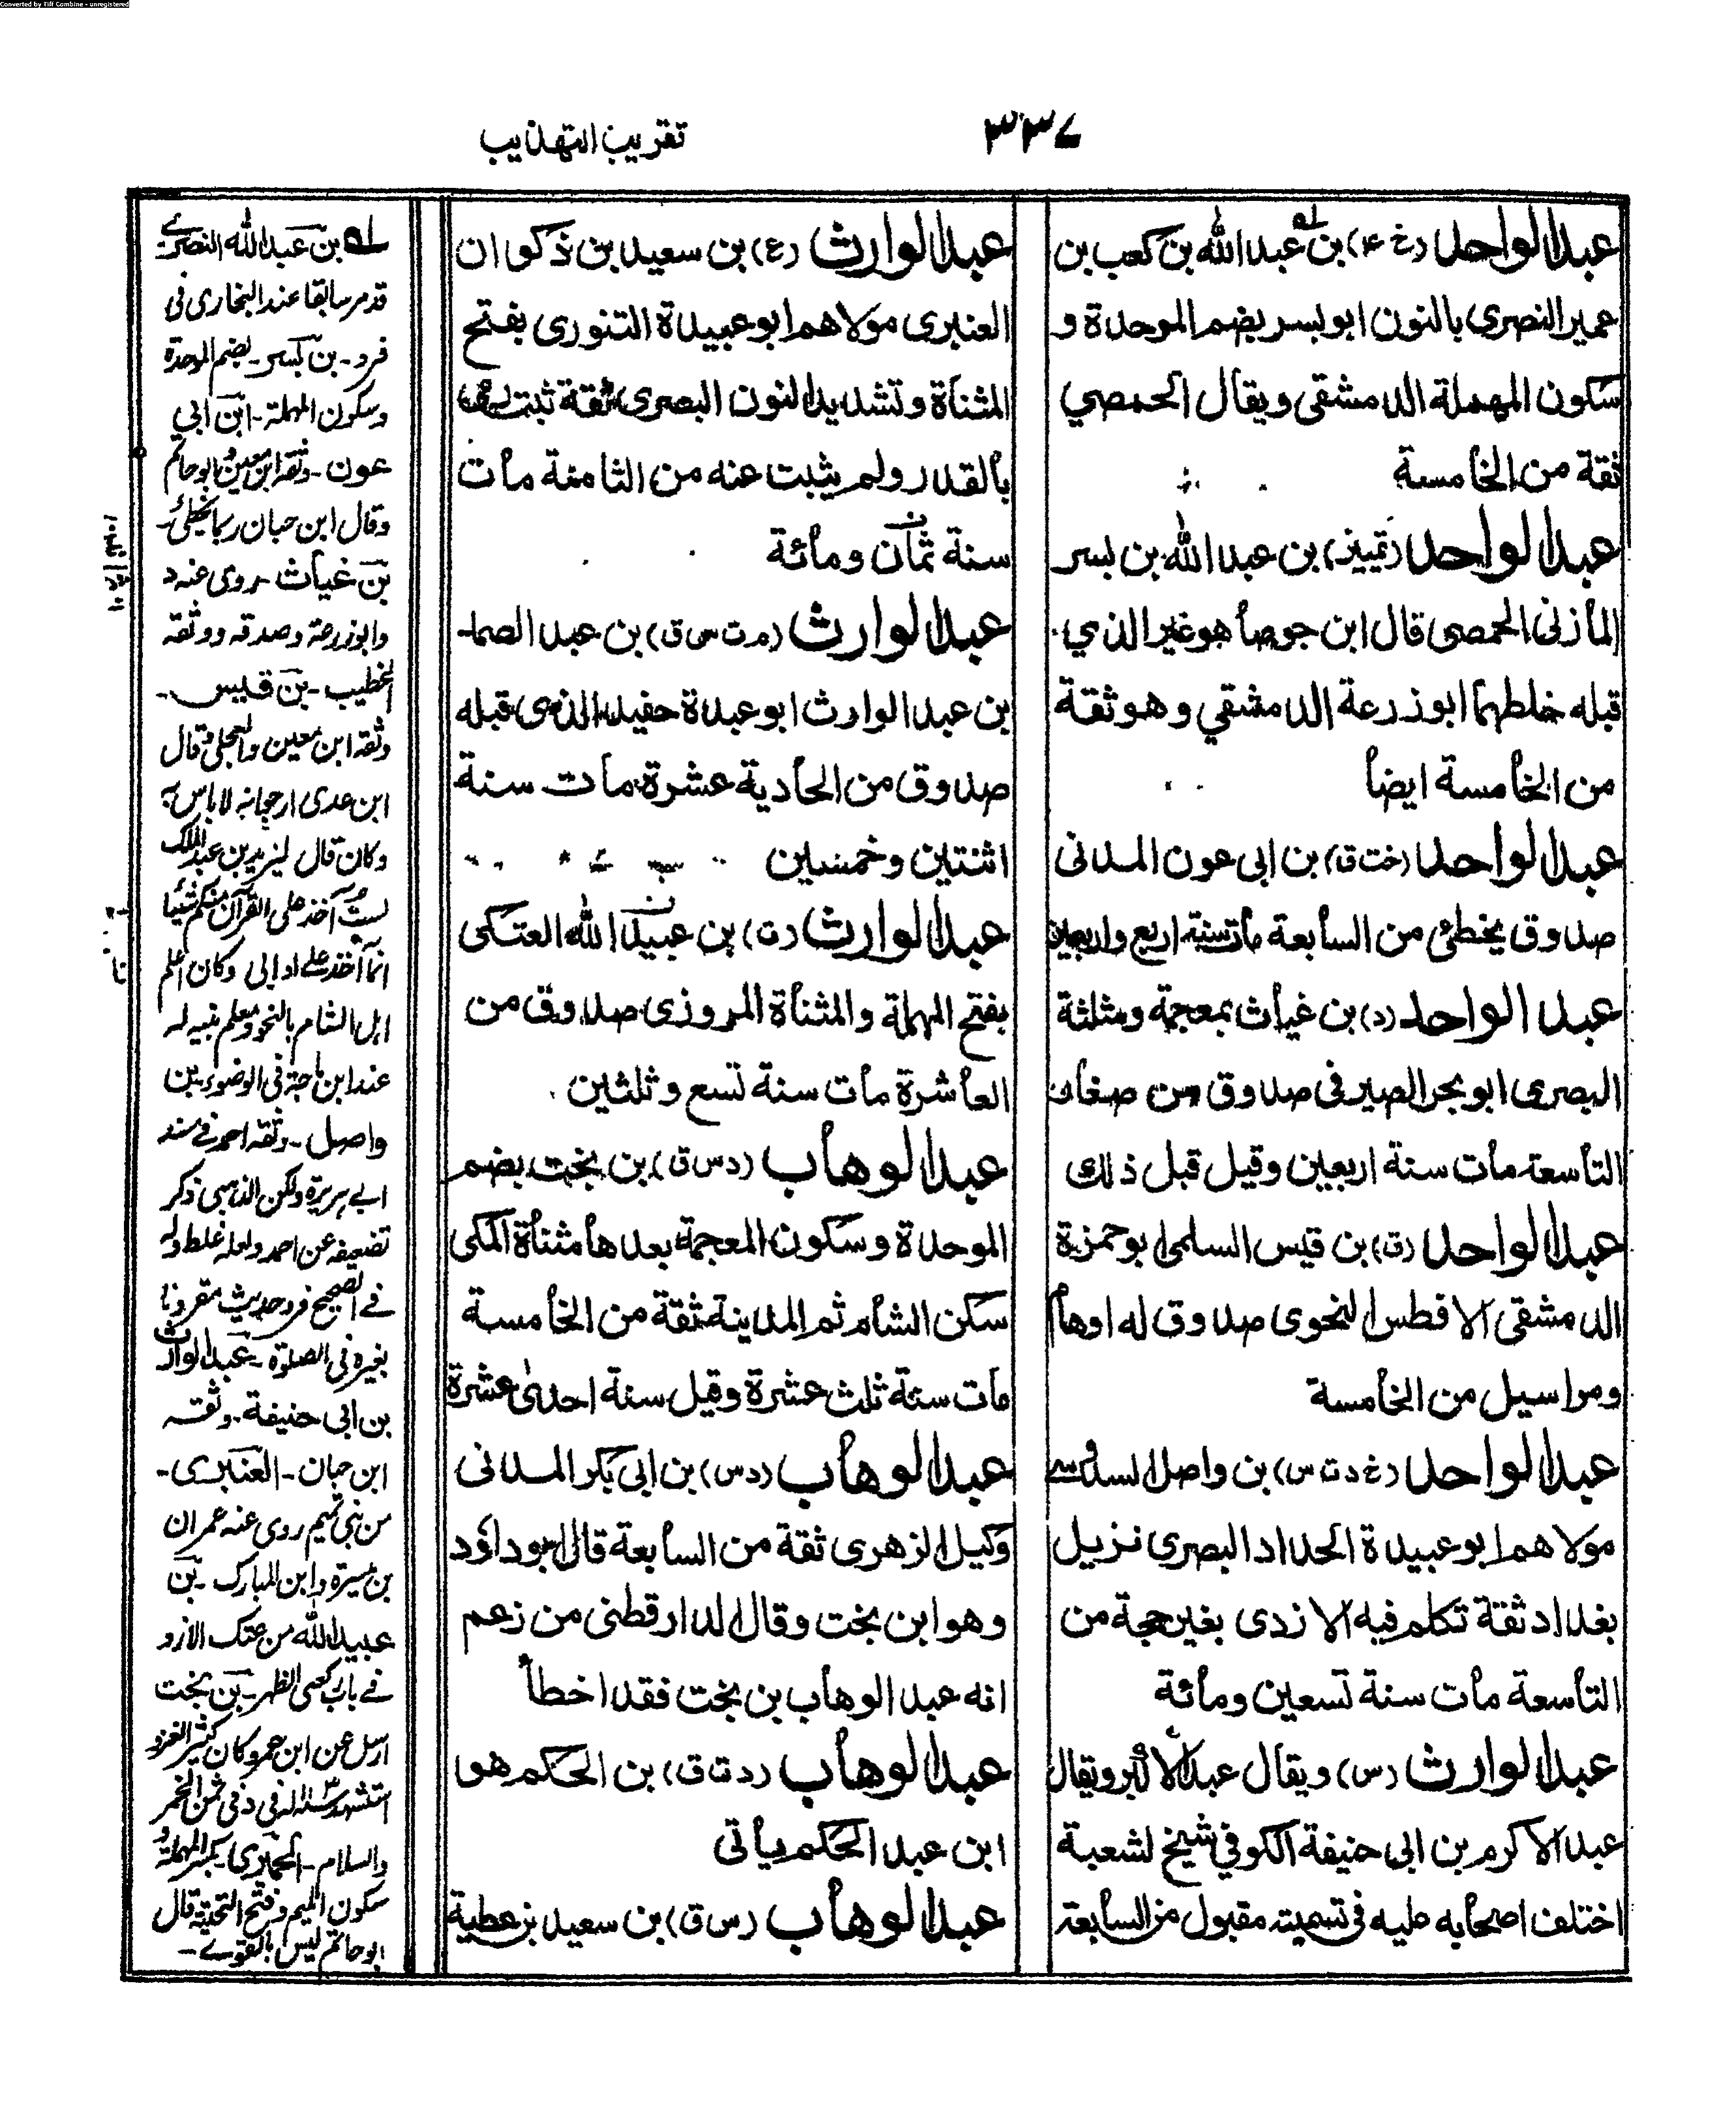 Converted by Tiff Combine - unregistered
٣٣٧
تقريب التهذيب
عبد الواحد (خ ٤) بن عبد الله بن كعب بن
عمير النصرى بالنون ابو بسر بضم الموحدة و
سكون المهملة الدمشقى ويقال الحمصي
ثقة من الخامسة
عبد الواحد (تمييز) بن عبد الله بن بسر
المازنى الحمصى قال ابن جوصا هو غير الذي
قبله خلطهما ابو زرعة الدمشقي وهو ثقة
من الخامسة ايضا
عبد الواحد (خت ق) بن ابى عون المدنى
صدوق يخطئ من السابعة مات سنة اربع واربعين
عبد الواحد (د) بن غياث بمعجمة ومثلثة
البصرى ابو بحر الصيرفى صدوق من صغار
التاسعة مات سنة اربعين وقيل قبل ذلك
عبد الواحد (ق) بن قيس السلمى ابو حمزة
الدمشقى الافطس النحوى صدوق له اوهام
ومراسيل من الخامسة
عبد الواحد (خ د ت س) بن واصل السدوسى
مولاهم ابو عبيدة الحداد البصرى نزيل
بغداد ثقة تكلم فيه الازدى بغير حجة من
التاسعة مات سنة تسعين ومائة
عبد الوارث (س) ويقال عبد الاكبر ويقال
عبد الاكرم بن ابى حنيفة الكوفي شيخ لشعبة
اختلف اصحابه عليه فى تسميته مقبول من السابعة
عبد الوارث (ع) بن سعيد بن ذكوان
العنبرى مولاهم ابو عبيدة التنورى بفتح
المثناة وتشديد النون البصرى ثقة ثبت رمى
بالقدر ولم يثبت عنه من الثامنة مات
سنة ثمان ومائة
عبد الوارث (م ت س ق) بن عبد الصمد
بن عبد الوارث ابو عبيدة حفيد الذى قبله
صدوق من الحادية عشرة مات سنة
اثنتين وخمسين
عبد الوارث (ت) بن عبيد الله العتكى
بفتح المهملة والمثناة المروزى صدوق من
العاشرة مات سنة تسع وثلثين
عبد الوهاب (د س ق) بن بخت بضم
الموحدة وسكون المعجمة بعدها مثناة المكى
سكن الشام ثم المدينة ثقة من الخامسة
مات سنة ثلث عشرة وقيل سنة احدى عشرة
عبد الوهاب (د س) بن ابى بكر المدنى
وكيل الزهرى ثقة من السابعة قال ابو داؤد
وهو ابن بخت وقال الدارقطنى من زعم
انه عبد الوهاب بن بخت فقد اخطأ
عبد الوهاب (د ت ق) بن الحكم هو
ابن عبد الحكم يأتى
عبد الوهاب (س ق) بن سعيد بن عطية
بن عبد الله النصرى
قد مر سابقا عند البخارى فى
فرد - بن بسر - بضم الموحدة
وسكون المهملة - ابن ابى
عون - وثقه ابن معين وابو حاتم
وقال ابن حبان ربما يخطئ -
بن غياث - روى عنه د
وابو زرعة وصدقه ووثقه
الخطيب - بن قيس -
وثقه ابن معين والعجلى وقال
ابن عدى ارجو انه لا باس به
وكان قال ليزيد بن عبد الملك
لست آخذ على القرآن منكم شيئا
انما آخذ على ادابى وكان اعلم
اهل الشام بالنحو ومعلم بنيه له
عند ابن ماجة فى الوضوء - بن
واصل - وثقه احمد فى مسند
ابى هريرة ولكن الذهبى ذكر
تضعيفه عن احمد ولعله غلط وله
فى الصحيح فرد حديث مقرونا
بغيره فى الصلوة - عبد الوارث
بن ابى حنيفة - وثقه
ابن حبان - العنبرى -
من بنى تميم روى عنه عمران
بن ميسرة وابن المبارك - بن
عبيد الله من عتك الازد
فى باب ركعتى الظهر - بن بخت
ارسل عن ابن عمر وكان كثير الغزو
استشهد له فى د فى ثمن الخمر
والسلام - الحميرى - بكسر المهملة و
سكون الميم وفتح التحتية قال
ابو حاتم ليس بالقوى -